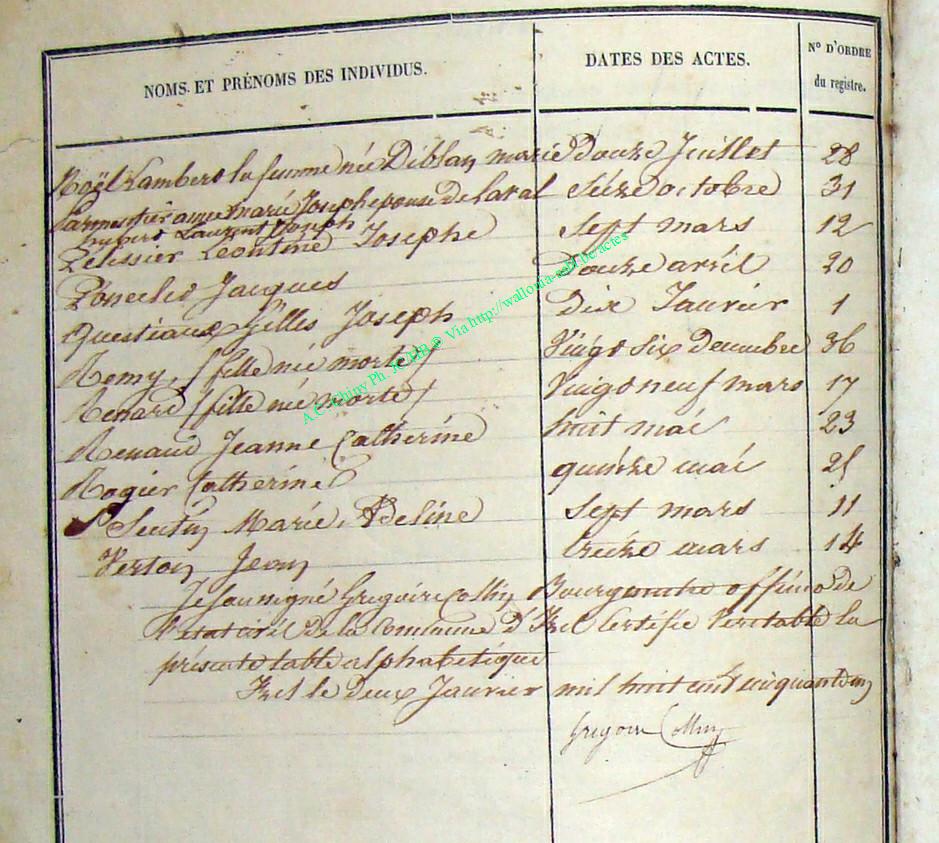 NOMS ET PRÉNOMS DES INDIVIDUS. DATES DES ACTES. N° D'ORDRE du registre.
Noël Lambert la femme née Diblan marie Douze Juillet 28
Parmentier marie Joseph epouse de Laval Seize octobre 31
Laurent Joseph
Pelissier Leontine Josephe Sept mars 12
Jacques Douze avril 20
Questiaux Gilles Joseph Dix Janvier 1
Remy, (fille née morte) Vingt Six Decembre 36
Renard (fille née morte) Vingt neuf mars 17
Renaud Jeanne Catherine huit mai 23
Rogier Catherine quinze mai 25
Marie, Adeline Sept mars 11
Verton Jean treize mars 14
Je Soussigné Grégoire Collin Bourgmestre officier de
l'etat civil de la Commune d'Izel Certifie Veritable la
présente table alphabetique
Izel le Deux Janvier mil huit cent cinquante un
Gregoire Collin
A.C. Chiny Ph. JCMR © Via http://wallonia-asbl.be/actes